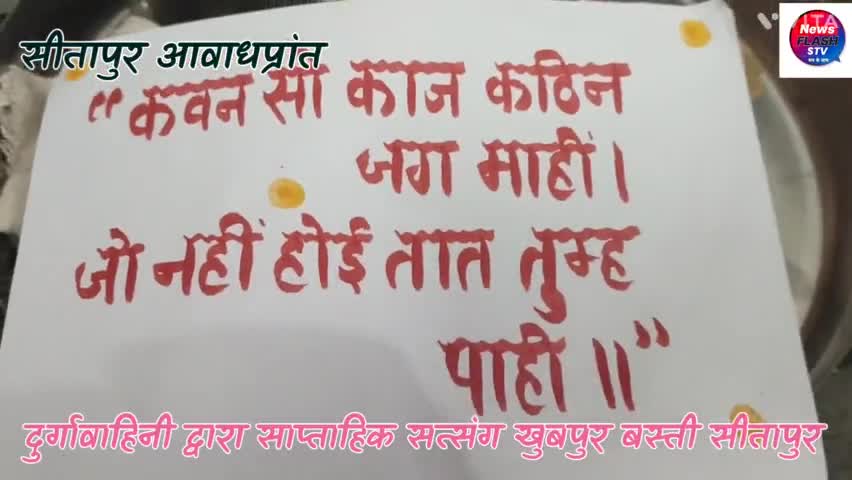 सीतापुर आवाधप्रांत
ITA
News
FLASH
STV
सच के साथ
“कवन सा काज कठिन
जग माहीं।
जो नहीं होई तात तुम्ह
पाहीं॥”
दुर्गावाहिनी द्वारा साप्ताहिक सत्संग खुबपुर बस्ती सीतापुर